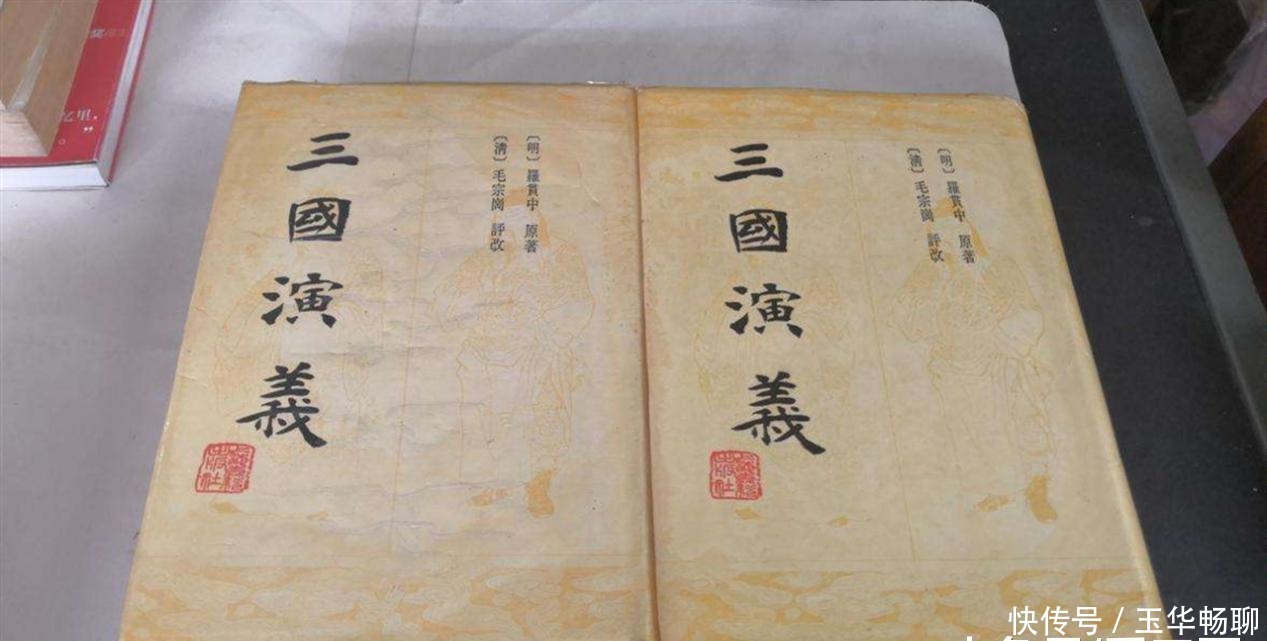 三國演義
〔明〕羅貫中 原著
〔清〕毛宗崗 評改
三國演義
〔明〕羅貫中 原著
〔清〕毛宗崗 評改
快传号 / 玉华畅聊